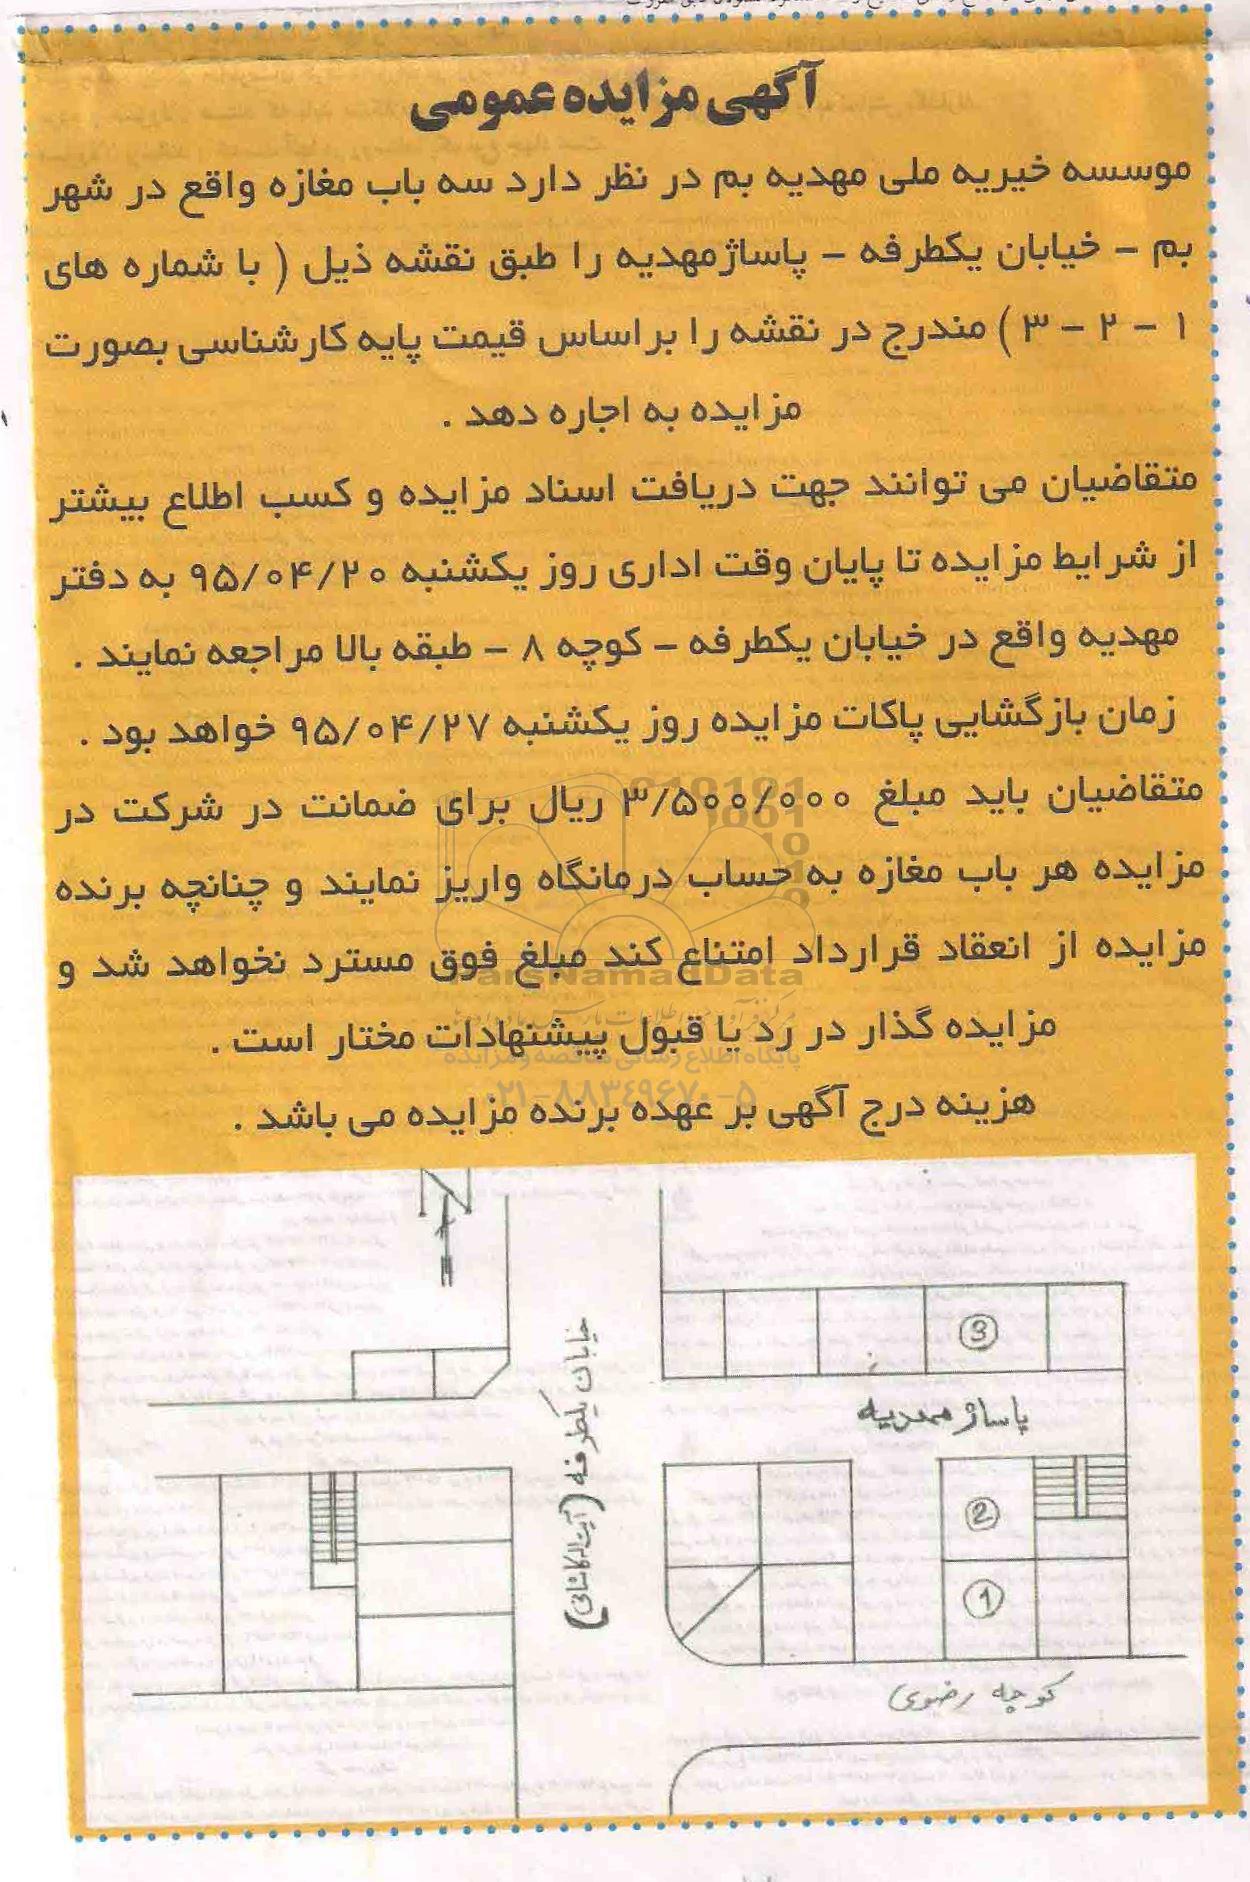 آگهی مزایده عمومی
موسسه خیریه ملی مهدیه بم در نظر دارد سه باب مغازه واقع در شهر
بم – خیابان یکطرفه – پاساژمهدیه را طبق نقشه ذیل ( با شماره های
۱ – ۲ – ۳ ) مندرج در نقشه را براساس قیمت پایه کارشناسی بصورت
مزایده به اجاره دهد .
متقاضیان می توانند جهت دریافت اسناد مزایده و کسب اطلاع بیشتر
از شرایط مزایده تا پایان وقت اداری روز یکشنبه ۹۵/۰۴/۲۰ به دفتر
مهدیه واقع در خیابان یکطرفه – کوچه ۸ – طبقه بالا مراجعه نمایند .
زمان بازگشایی پاکات مزایده روز یکشنبه ۹۵/۰۴/۲۷ خواهد بود .
متقاضیان باید مبلغ ۳/۵۰۰/۰۰۰ ریال برای ضمانت در شرکت در
مزایده هر باب مغازه به حساب درمانگاه واریز نمایند و چنانچه برنده
مزایده از انعقاد قرارداد امتناع کند مبلغ فوق مسترد نخواهد شد و
مزایده گذار در رد یا قبول پیشنهادات مختار است .
هزینه درج آگهی بر عهده برنده مزایده می باشد .
ParsNamadData
پایگاه اطلاع رسانی مناقصه و مزایده
۰۲۱-۸۸۳۴۹۶۷۰-۵
N
خیابان یکطرفه (آیت اله کاشانی)
3
پاساژ مهدیه
2
1
کوچه رضوی